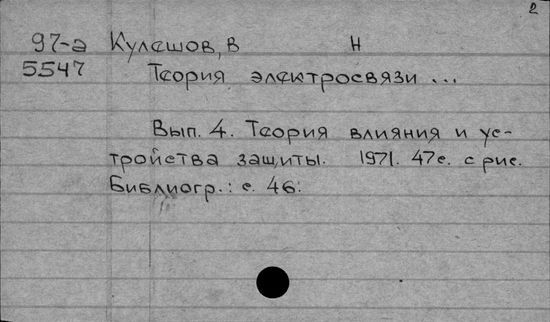 2
97-а Кулешов, В Н
5547 Теория электросвязи ...
Вып. 4. Теория влияния и ус-
тройства защиты. 1971. 47с. с рис.
Библиогр.: с. 46.